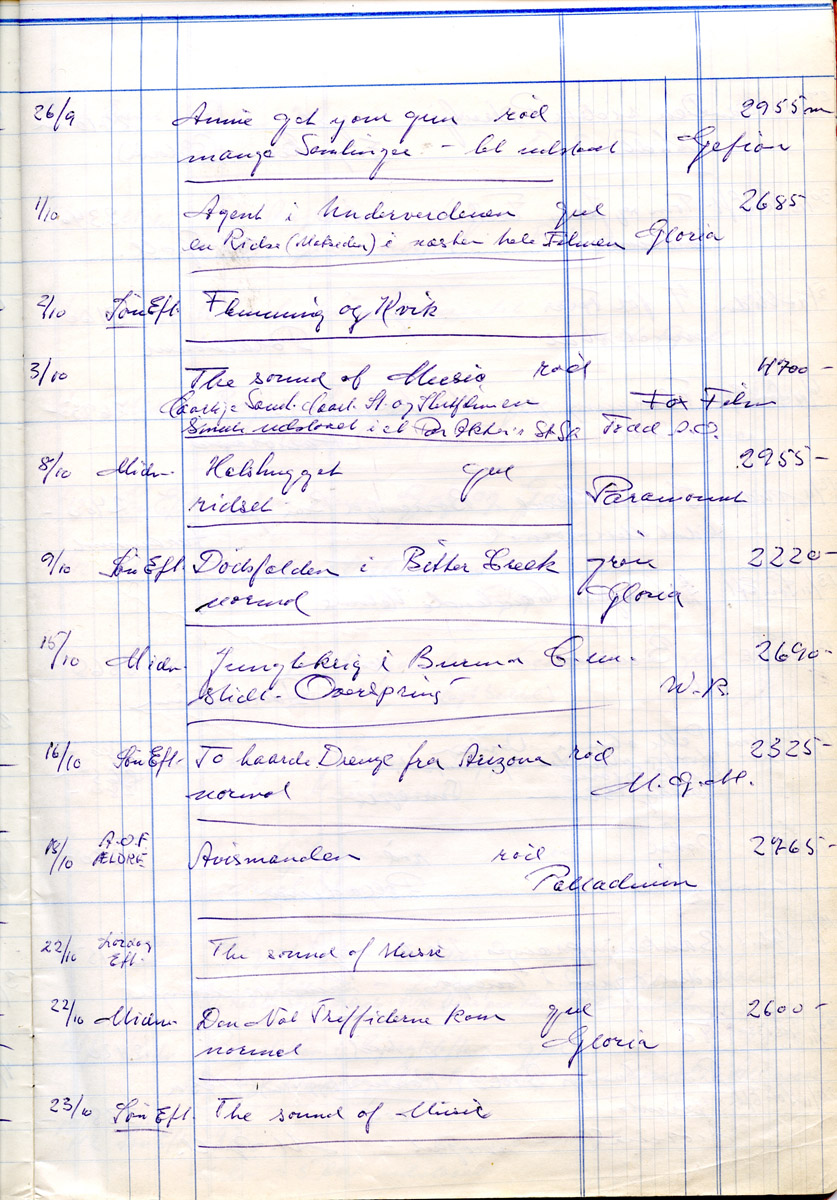 26/9 Annie get your gun rød 2955 m
mange Samlinger - lel udslaaet Gefion
1/10 Agent i Underverdenen gul 2685-
en Ridse (Midten) i næsten hele Filmen Gloria
2/10 Søn Eft. Flemming og Kvik
3/10 The sound of Music rød 4700-
Daarlige Saml. daarl. St. og Slutfilmen Fox Film
udslaaet i et Par Akter's St Sl Todd A.O.
8/10 Midn. Halshugget gul 2955-
ridset Paramount
9/10 Søn Eft. Dødsfælden i Bitter Creek grøn 2220-
normal Gloria
15/10 Midn. Junglekrig i Burma 2690-
slidt - Overspring W.B.
16/10 Søn Eft. To haarde Drenge fra Arizona rød 2325-
normal M.G.M.
18/10 A.O.F. ÆLDRE Avismanden rød 2765-
Palladium
22/10 Lørdag Eft. The sound of Music
22/10 Midn. Den Nat Triffiderne kom gul 2600-
normal Gloria
23/10 Søn Eft. The sound of Music